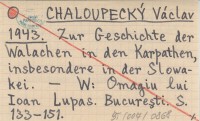 CHALOUPECKÝ Václav
1943. Zur Geschichte der
Walachen in den Karpathen,
insbesondere in der Slowa-
kei. — W: Omagiu lui
Ioan Lupas. Bucureşti. S.
133-151.